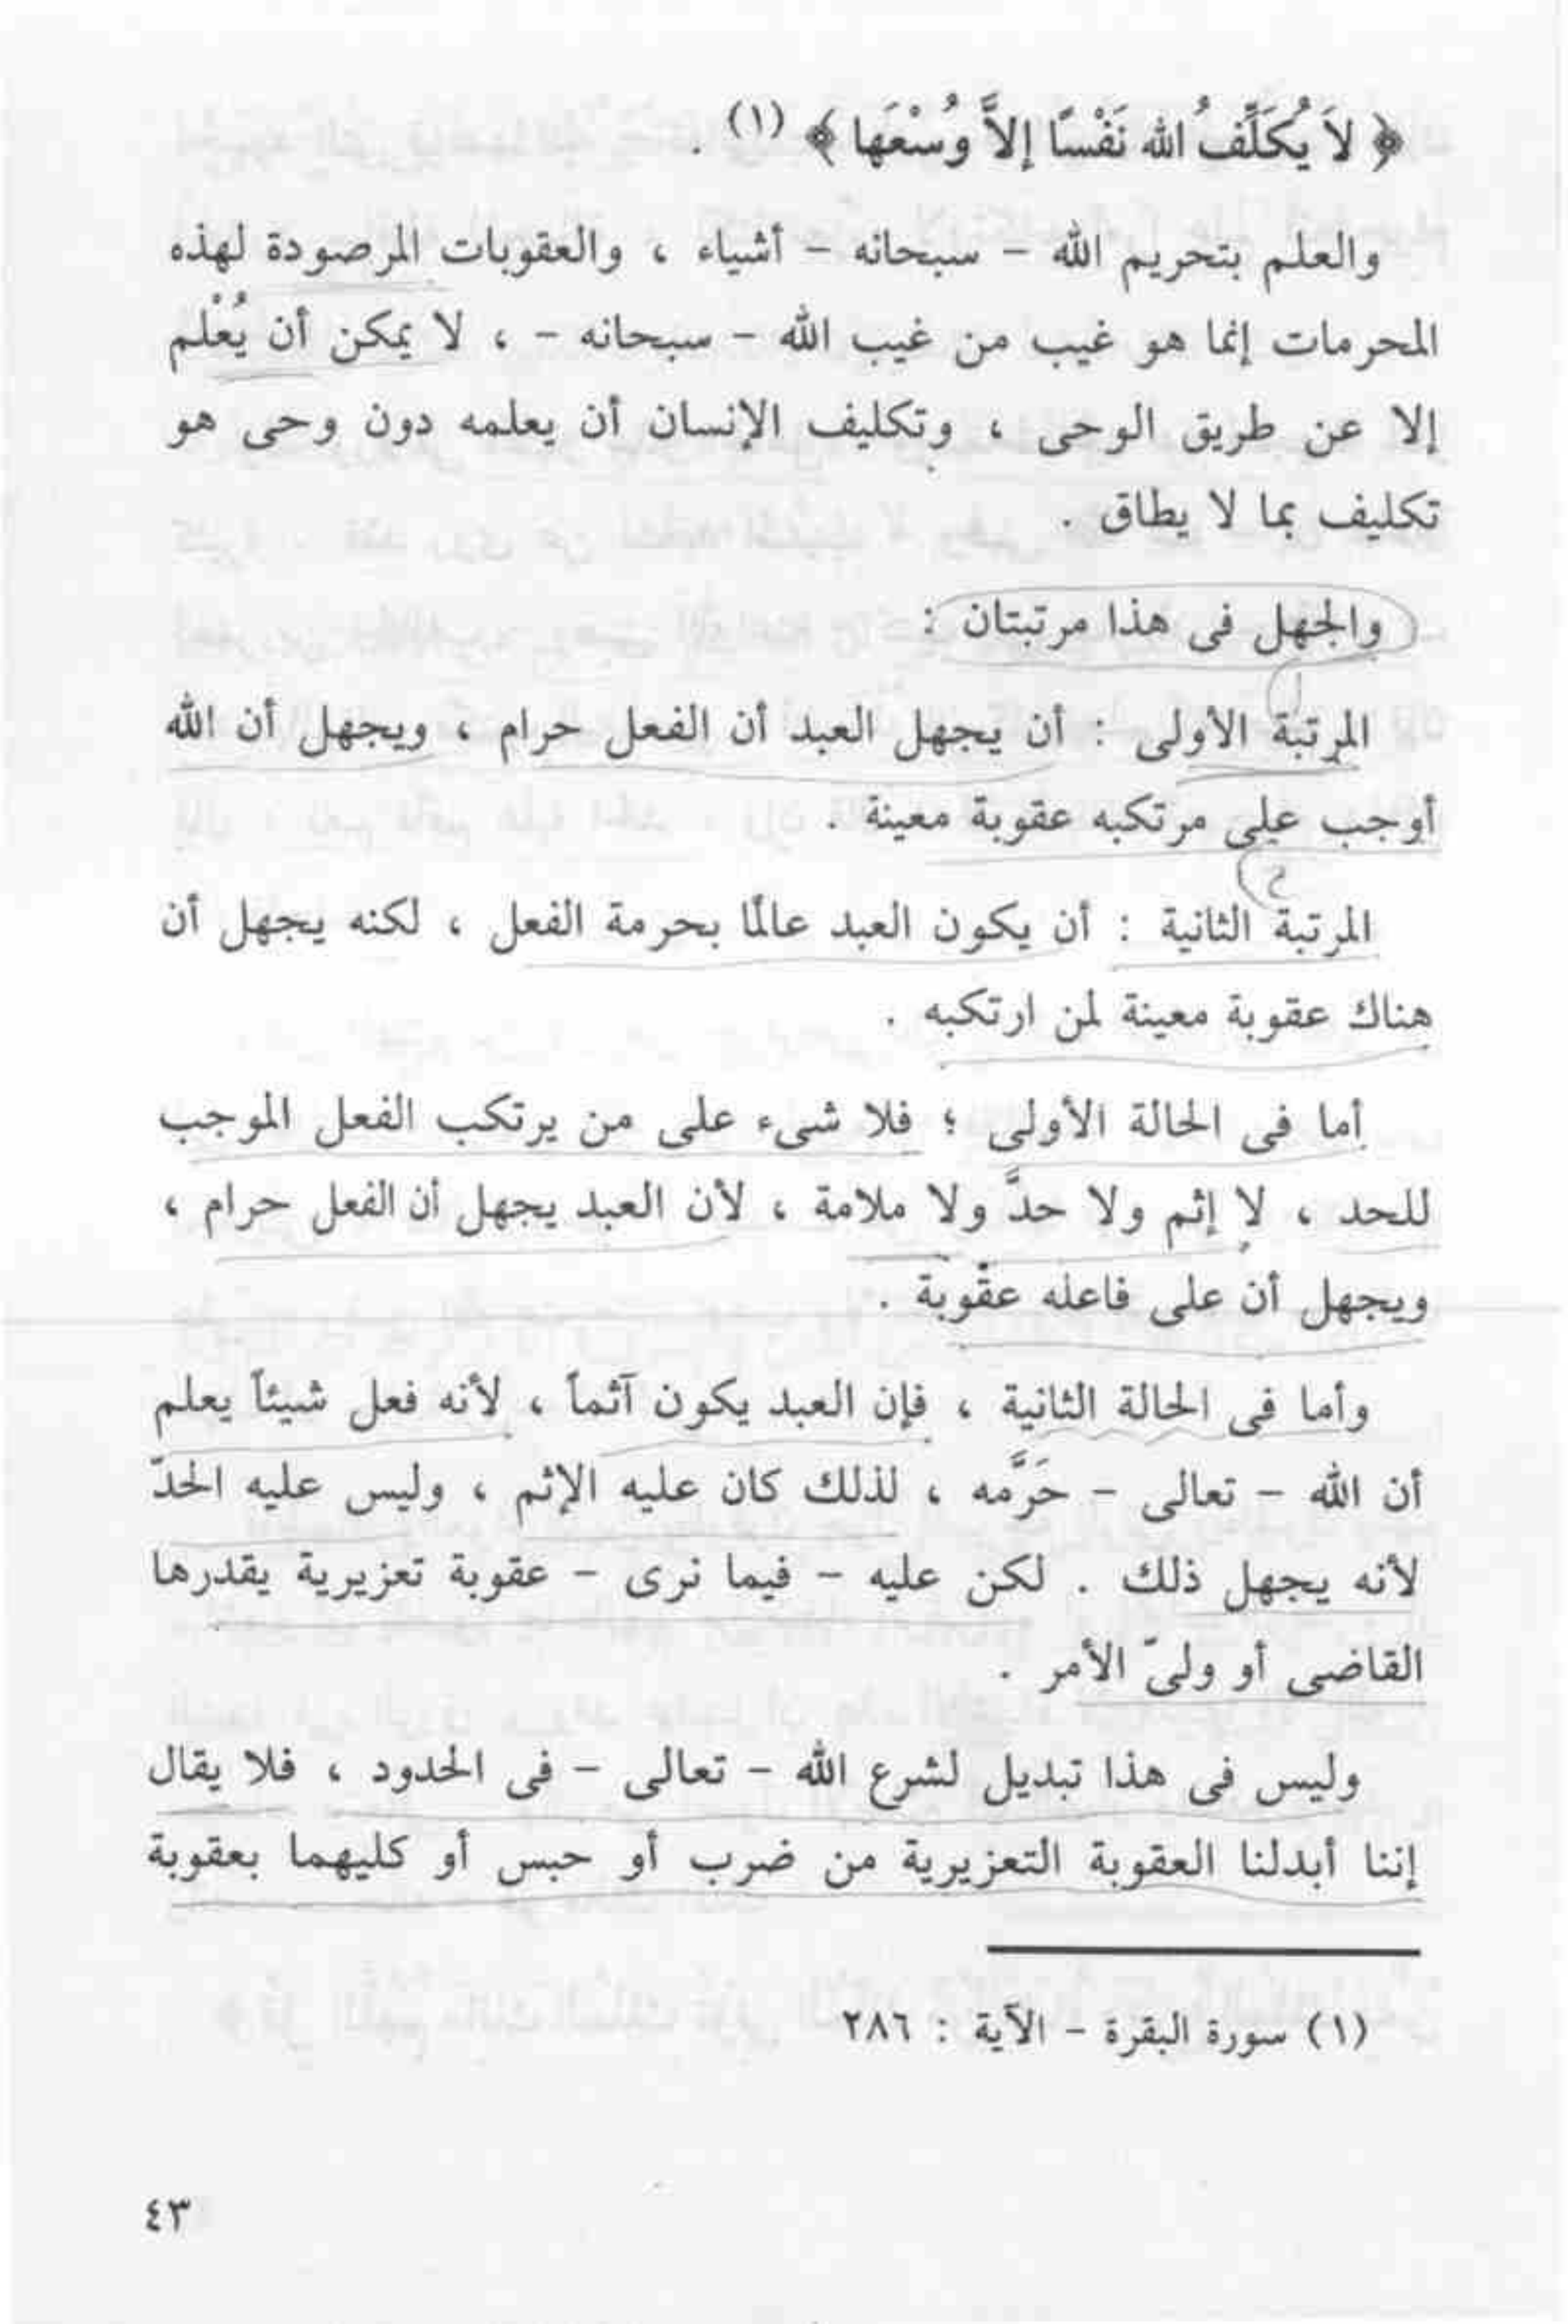 ﴿ لاَ يُكَلِّفُ الله نَفْسًا إلاَّ وُسْعَها ﴾ (١) .
والعلم بتحريم الله – سبحانه – أشياء ، والعقوبات المرصودة لهذه
المحرمات إنما هو غيب من غيب الله – سبحانه – ، لا يمكن أن يُعْلم
إلا عن طريق الوحى ، وتكليف الإنسان أن يعلمه دون وحى هو
تكليف بما لا يطاق .
والجهل فى هذا مرتبتان :
المرتبة الأولى : أن يجهل العبد أن الفعل حرام ، ويجهل أن الله
أوجب على مرتكبه عقوبة معينة .
المرتبة الثانية : أن يكون العبد عالمًا بحرمة الفعل ، لكنه يجهل أن
هناك عقوبة معينة لمن ارتكبه .
أما فى الحالة الأولى ؛ فلا شىء على من يرتكب الفعل الموجب
للحد ، لا إثم ولا حدَّ ولا ملامة ، لأن العبد يجهل أن الفعل حرام ،
ويجهل أن على فاعله عقوبة .
وأما فى الحالة الثانية ، فإن العبد يكون آثماً ، لأنه فعل شيئاً يعلم
أن الله – تعالى – حَرَّمه ، لذلك كان عليه الإثم ، وليس عليه الحدّ
لأنه يجهل ذلك . لكن عليه – فيما نرى – عقوبة تعزيرية يقدرها
القاضى أو ولىّ الأمر .
وليس فى هذا تبديل لشرع الله – تعالى – فى الحدود ، فلا يقال
إننا أبدلنا العقوبة التعزيرية من ضرب أو حبس أو كليهما بعقوبة
(١) سورة البقرة – الآية : ٢٨٦
٤٣